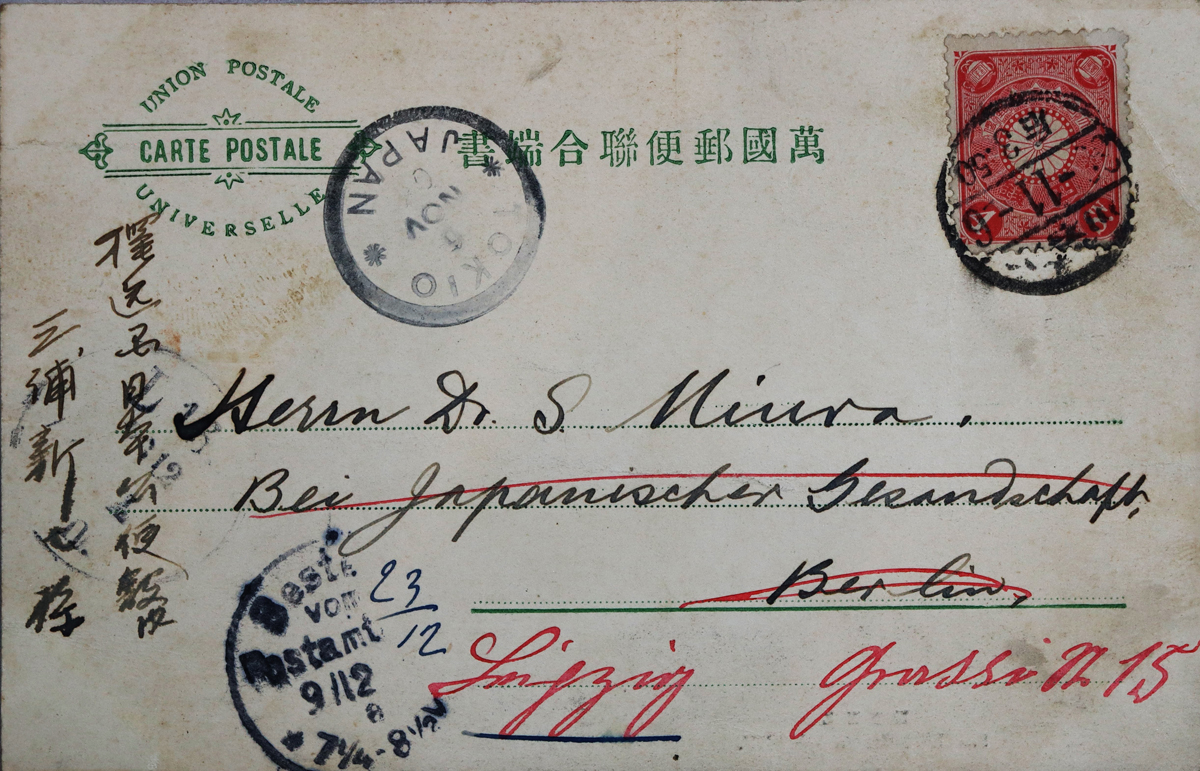 UNION POSTALE
CARTE POSTALE
UNIVERSELLE
萬國郵便聯合端書
TOKIO
NOV
JAPAN
Herrn Dr. S Miura.
Bei Japanischer Gesandschaft,
Berlin,
Leipzig Grassi Str 15
23/12
Best.
vom
Postamt
9/12
7¼-8½V
三浦新